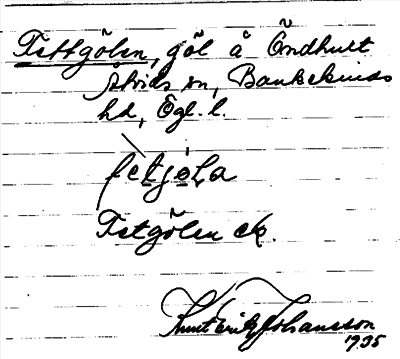 Fettgölen, göl å Öndhult
Åtvids sn, Bankekinds
hd, Ögl. l.
fètjóLa
Fetgölen ek.
Knut Eric Johansson
1935